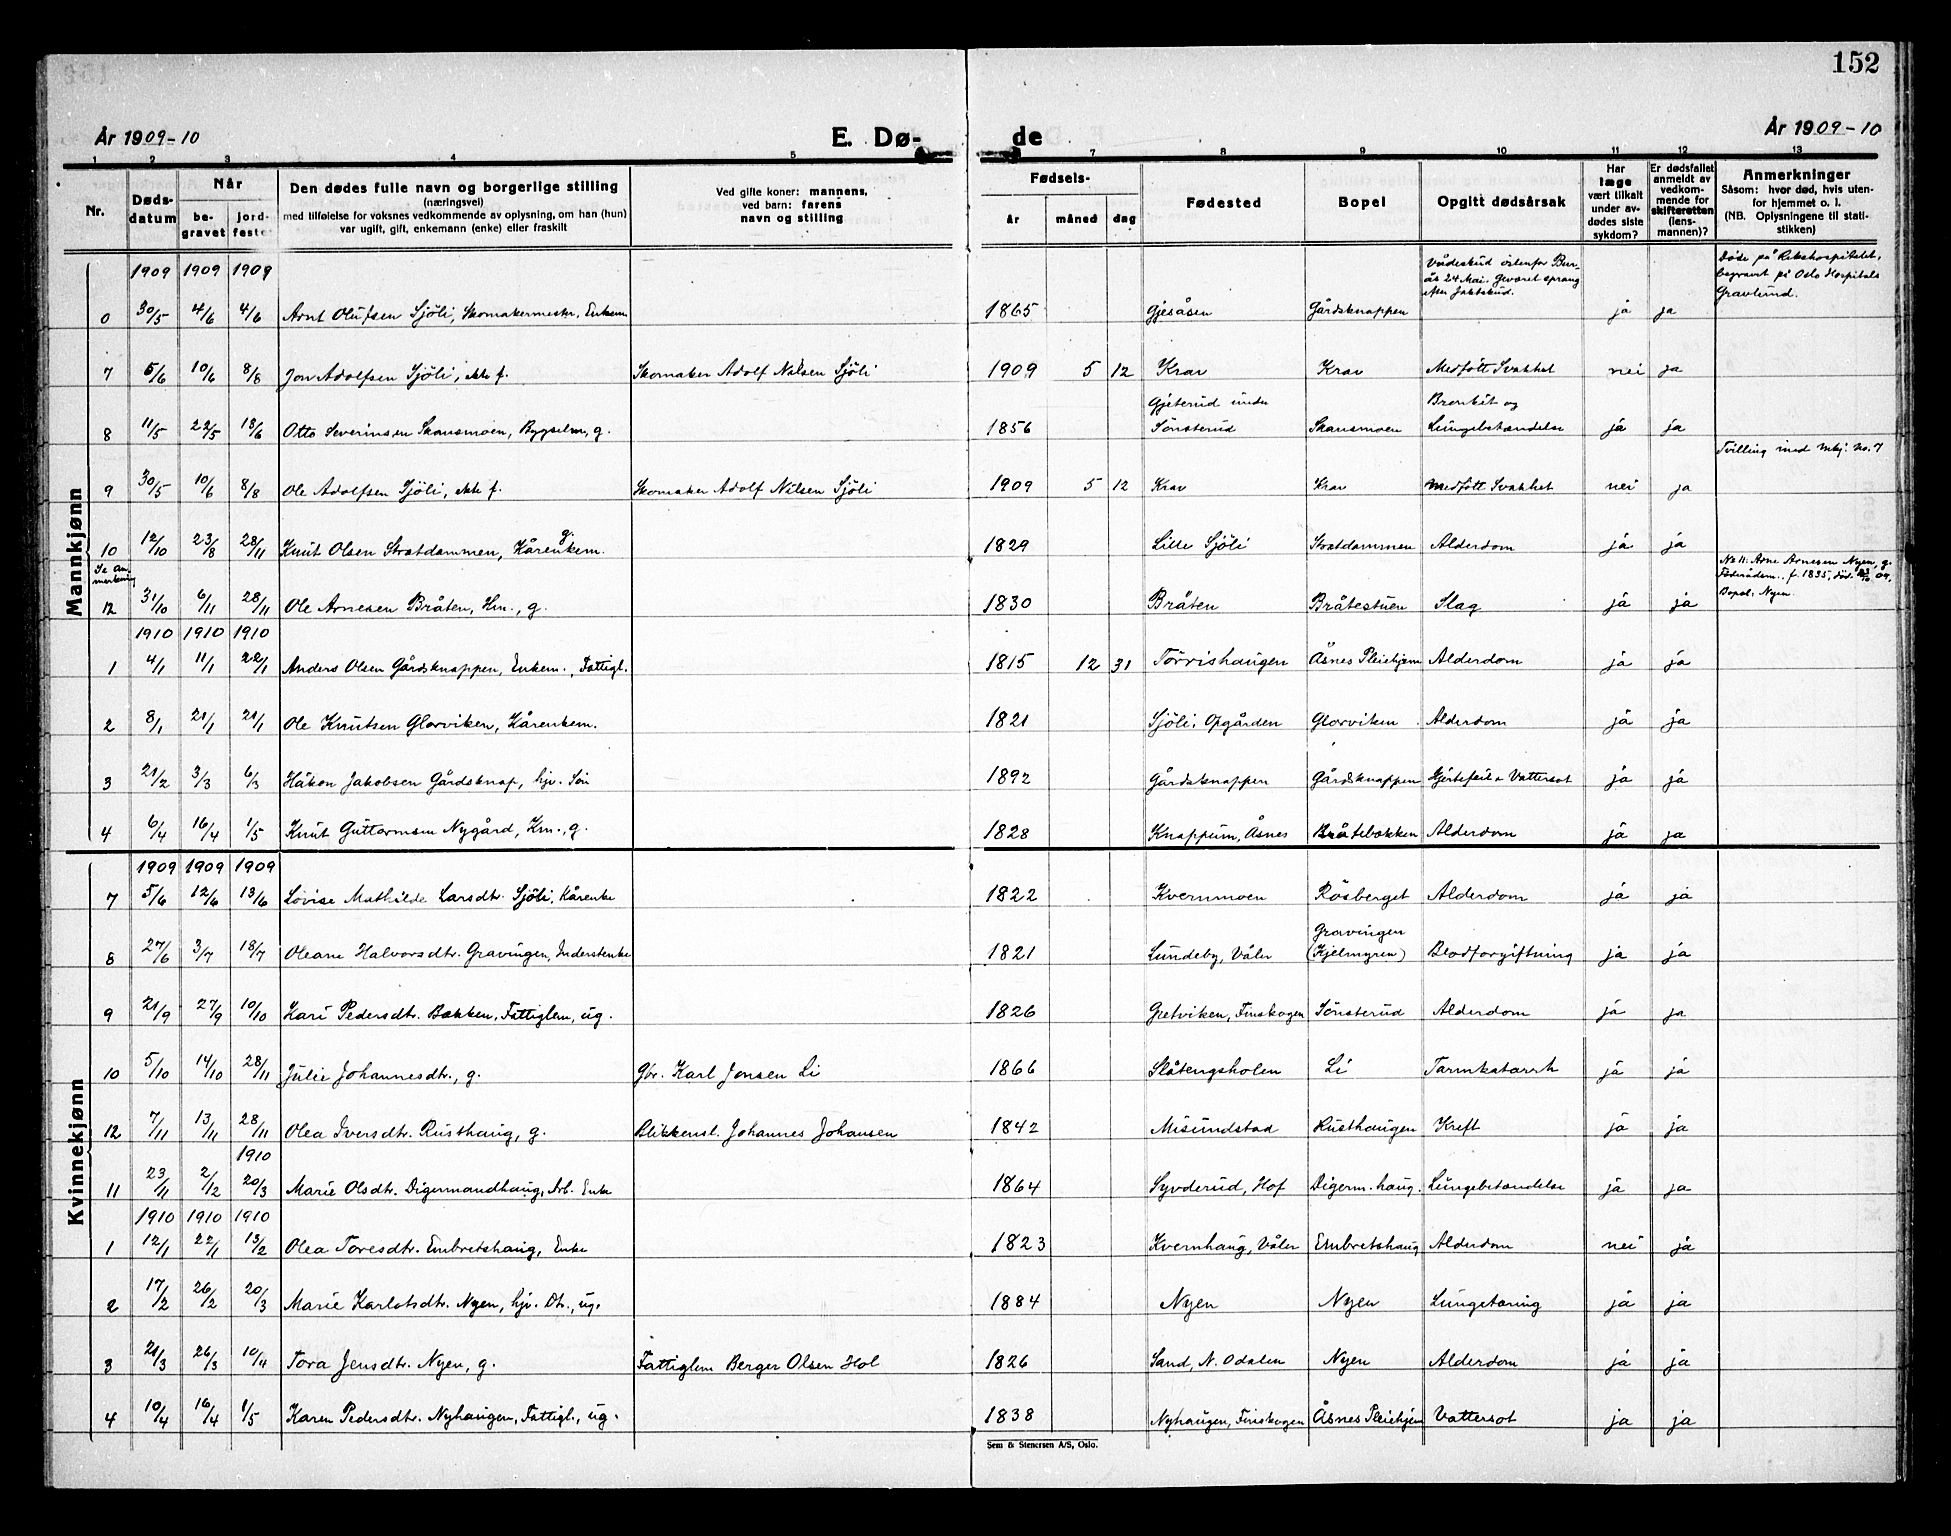 152
År 1909-10
E. Dø-
de
År 1909-10
1 2 3 4 5 7 8 9 10 11 12 13
Nr.
Døds-
datum
Når
be-
gravet
jord-
festet
Den dødes fulle navn og borgerlige stilling
(næringsvei)
med tilføielse for voksnes vedkommende av oplysning, om han (hun)
var ugift, gift, enkemann (enke) eller fraskilt
Ved gifte koner: mannens,
ved barn: farens
navn og stilling
Fødsels-
år måned dag
Fødested
Bopel
Opgitt dødsårsak
Har
læge
vært tilkalt
under av-
dødes siste
sykdom?
Er dødsfallet
anmeldt av
vedkom-
mende for
skifteretten
(lens-
mannen)?
Anmerkninger
Såsom: hvor død, hvis uten-
for hjemmet o. l.
(NB. Oplysningene til stati-
stikken)
Mannkjønn
1909 1909 1909
Vådeskud östenfor Bur-
ås 24 Mai. Geværet sprang
efter Jaktskud.
Døde på Rikshospitalet,
begravet på Oslo Hospitals
Gravlund.
0 30/5 4/6 4/6 Arnt Olufsen Sjöli, Skomakermester, Enkem 1865 Gjesåsen Gårdsknappen ja ja
7 5/6 10/6 8/8 Jon Adolfsen Sjöli, ekte f. Skomaker Adolf Nilsen Sjöli 1909 5 12 Krav Krav Medfött Svakhet nei ja
Gjeterud under Bronkit og
8 11/5 22/5 13/6 Otto Severinsen Skansmoen, Bygselm, g. 1856 Sönsterud Skansmoen Lungebetændelse ja ja
Tvilling med mkj. no. 7
9 30/5 10/6 8/8 Ole Adolfsen Sjöli, ekte f. Skomaker Adolf Nilsen Sjöli 1909 5 12 Krav Krav Medfött Svakhet nei ja
10 12/10 23/8 28/11 Knut Olsen Stratdammen, Kårenkem. 1829 Lille Sjöli Stratdammen Alderdom ja ja
Se An-
merkning
No 11: Arne Arnesen Nyen, g.
Föderådsm., f. 1835, död 09,
Bopel: Nyen.
12 31/10 6/11 28/11 Ole Arnesen Bråten, Hm., g. 1830 Bråten Bråtestuen Slag ja ja
1910 1910 1910
1 4/1 11/1 22/1 Anders Olsen Gårdsknappen, Enkem., Fattigl. 1815 12 31 Törrishaugen Åsnes Pleiehjem Alderdom ja ja
2 8/1 21/1 21/1 Ole Knutsen Glorviken, Kårenkem. 1821 Sjöli, Opgården Glorviken Alderdom ja ja
3 21/2 3/3 6/3 Håkon Jakobsen Gårdsknap, hjv. Sön 1892 Gårdsknappen Gårdsknappen Hjertefeil & Vattersot ja ja
4 6/4 16/4 1/5 Knut Guttormsen Nygård, Km., g. 1828 Knappum, Åsnes Bråtebækken Alderdom ja ja
Kvinnekjønn
1909 1909 1909
7 5/6 12/6 13/6 Lovise Mathilde Larsdtr. Sjöli, Kårenke 1822 Kvernmoen Råsberget Alderdom ja ja
Gravingen
8 27/6 3/7 18/7 Oleane Halvorsdtr. Gravingen, Inderstenke 1821 Lundeby, Våler (Kjelmyren) Blodforgiftning ja ja
9 21/9 27/9 10/10 Kari Pedersdtr. Bækken, Fattiglem, ug. 1826 Gretviken, Finskogen Sönsterud Alderdom ja ja
10 5/10 14/10 28/11 Julie Johannesdtr., g. Gbr. Karl Jensen Li 1866 Slåtengsholen Li Tarmkatarrh ja ja
12 7/11 13/11 28/11 Olea Iversdtr. Rusthaug, g. Blikkensl. Johannes Johansen 1842 Misundstad Rusthaugen Kreft ja ja
1910
11 23/11 2/12 20/3 Marie Olsdtr. Digermandhaug, Arb. Enke 1864 Syverud, Hof Digerm.haug. Lungebetændelse ja ja
1910 1910 1910
1 12/1 22/1 13/2 Olea Toresdtr. Embretshaug, Enke 1823 Kvernhaug, Våler Embretshaug Alderdom nei ja
2 17/2 26/2 20/3 Marie Karlotsdtr. Nyen, hjv. Dtr., ug. 1884 Nyen Nyen Lungetæring ja ja
3 21/3 26/3 10/4 Tora Jensdtr. Nyen, g. Fattiglem Berger Olsen Hol 1826 Sand, N. Odalen Nyen Alderdom ja ja
4 10/4 16/4 1/5 Karen Pedersdtr. Nyhaugen, Fattigl., ug. 1838 Nyhaugen, Finskogen Åsnes Pleiehjem Vattersot ja ja
Sem & Stenersen A/S, Oslo.